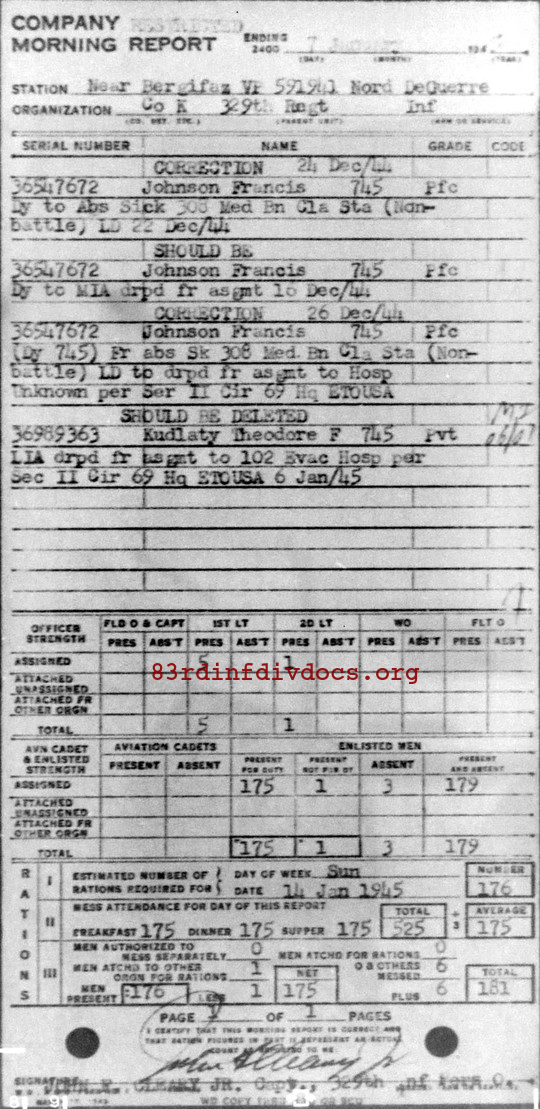 COMPANY RESTRICTED
MORNING REPORT ENDING 2400 7 January 194
(DAY) (MONTH) (YEAR)
STATION Near Bergifaz VP 591981 Nord DeGuerre
ORGANIZATION Co K 329th Regt Inf
(CO. DET. ETC.) (PARENT UNIT) (ARM OR SERVICE)
SERIAL NUMBER NAME GRADE CODE
CORRECTION 24 Dec/44
36547672 Johnson Francis 745 Pfc
Dy to Abs Sick 308 Med Bn Cla Sta (Non-
battle) LD 22 Dec/44
SHOULD BE
36547672 Johnson Francis 745 Pfc
Dy to MIA drpd fr asgmt 16 Dec/44
CORRECTION 26 Dec/44
36547672 Johnson Francis 745 Pfc
(Dy 745) Fr abs Sk 308 Med Bn Cla Sta (Non-
battle) LD to drpd fr asgmt to Hosp
Unknown per Ser II Cir 69 Hq ETOUSA
SHOULD BE DELETED
36989363 Kudlaty Theodore F 745 Pvt
LIA drpd fr asgmt to 102 Evac Hosp per
Sec II Cir 69 Hq ETOUSA 6 Jan/45
OFFICER STRENGTH FLD O & CAPT 1ST LT 2D LT WO FLT O
PRES ABS'T PRES ABS'T PRES ABS'T PRES ABS'T PRES ABS'T
ASSIGNED 5 1
83rdinfdivdocs.org
ATTACHED UNASSIGNED
ATTACHED FR OTHER ORGN
TOTAL 5 1
AVN CADET & ENLISTED STRENGTH AVIATION CADETS ENLISTED MEN
PRESENT ABSENT PRESENT FOR DUTY PRESENT NOT FOR DY ABSENT PRESENT AND ABSENT
ASSIGNED 175 1 3 179
ATTACHED UNASSIGNED
ATTACHED FR OTHER ORGN
TOTAL 175 1 3 179
RATIONS
I ESTIMATED NUMBER OF RATIONS REQUIRED FOR DAY OF WEEK Sun NUMBER
DATE 14 Jan 1945 176
II MESS ATTENDANCE FOR DAY OF THIS REPORT TOTAL ÷ 3 AVERAGE
BREAKFAST 175 DINNER 175 SUPPER 175 525 175
III MEN AUTHORIZED TO MESS SEPARATELY 0 MEN ATCHD FOR RATIONS 0
MEN ATCHD TO OTHER ORGN FOR RATIONS 1 NET O & OTHERS MESSED 6 TOTAL
MEN PRESENT 176 LESS 1 175 PLUS 6 181
PAGE 1 OF 1 PAGES
I CERTIFY THAT THIS MORNING REPORT IS CORRECT AND
THAT RATION FIGURES IN PART III REPRESENT AN ACTUAL
COUNT AS REPORTED TO ME
SIGNATURE JOHN F. CLEARY JR. Capt., 329th Inf